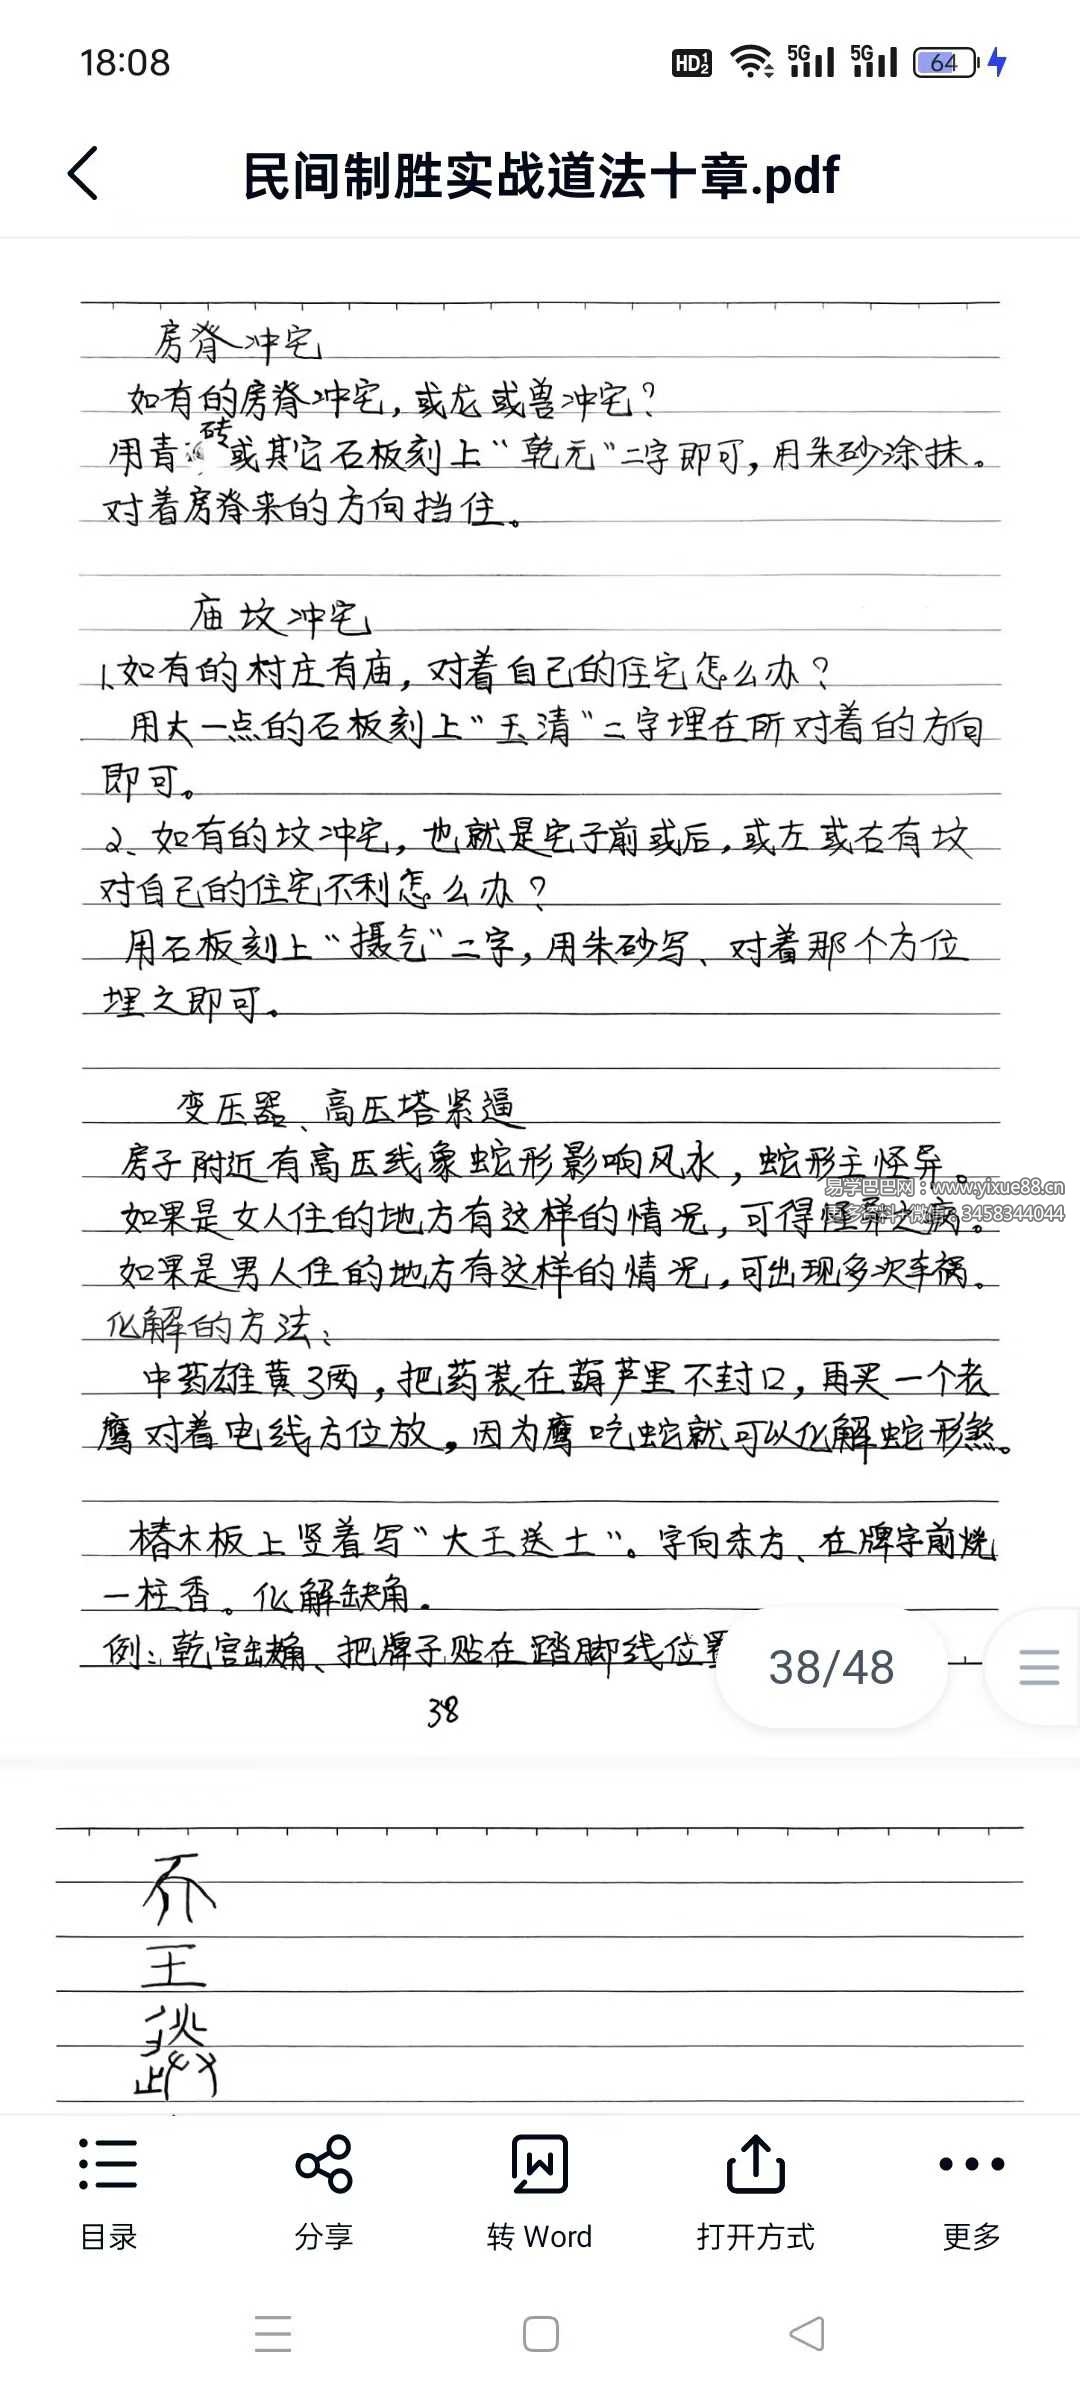 18:08
HD 1 2 5G 5G 64
民间制胜实战道法十章.pdf
房脊冲宅
如有的房脊冲宅，或龙或兽冲宅？
用青砖或其它石板刻上“乾元”二字即可，用朱砂涂抹。
对着房脊来的方向挡住。
庙坟冲宅
1、如有的村庄有庙，对着自己的住宅怎么办？
用大一点的石板刻上“玉清”二字埋在所对着的方向
即可。
2、如有的坟冲宅，也就是宅子前或后，或左或右有坟
对自己的住宅不利怎么办？
用石板刻上“摄气”二字，用朱砂写、对着那个方位
埋之即可。
变压器、高压塔紧逼
房子附近有高压线象蛇形影响风水，蛇形主怪异。
易学巴巴网：www.yixue88.cn
如果是女人住的地方有这样的情况，可得怪异之病。
更多资料+微信：3458344044
如果是男人住的地方有这样的情况，可出现多次车祸。
化解的方法：
中药雄黄3两，把药装在葫芦里不封口，再买一个老
鹰对着电线方位放，因为鹰吃蛇就可以化解蛇形煞。
椿木板上竖着写“大王送土”。字向东方、在牌字前烧
一柱香。化解缺角.
例：乾宫缺角、把牌子贴在踏脚线位置
38/48
38
王
目录
分享
转 Word
打开方式
更多